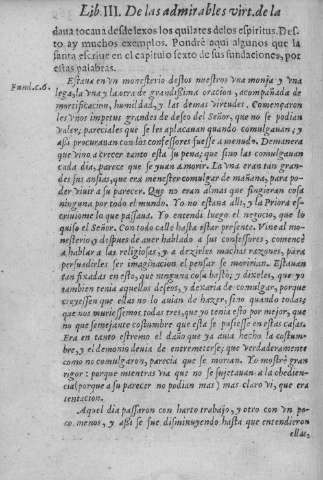 Lib. III. De las admirables virt. de la
daua tocaua desde lexos los quilates delos espiritus. Des-
to ay muchos exemplos. Pondrè aqui algunos que la
santa escriue en el capitulo sexto de sus fundaciones, por
estas palabras.
Fund.c.6.
Estaua en vn monesterio destos nuestros vna monja y vna
lega, la vna y la otra de grandissima oracion, acompañada de
mortificacion, humildad, y las demas virtudes. Començaron
les vnos impetus grandes de desseo del Señor, que no se podian
valer; pareciales que se les aplacauan quando comulgauan, y
assi procurauan con los confessores fuesse a menudo. De manera
que vino a crecer tanto esta su pena, que sino las comulgauan
cada dia, parece que se yuan a morir. La vna eran tan gran-
des sus ansias, que era menester comulgar de mañana, para po-
der viuir a su parecer. Que no eran almas que fingieran cosa
ninguna por todo el mundo. Yo no estaua alli, y la Priora es-
criuiome lo que passaua. Yo entendi luego el negocio, que lo
quiso el Señor. Con todo calle hasta estar presente. Vine al mo-
nesterio, y despues de auer hablado a sus confessores, comencè
a hablar a las religiosas, y a dezirles muchas razones, para
persuadirles ser imaginacion el pensar se moririan. Estauan
tan fixadas en esto, que ninguna cosa bastò; y dixeles, que yo
tambien tenia aquellos desseos, y dexaria de comulgar, porque
creyessen que ellas no lo auian de hazer, sino quando todas;
que nos muriessemos todas tres, que yo tenia esto por mejor, que
no que semejante costumbre que esta se pusiesse en estas casas.
Era en tanto estremo el daño que ya auia hecho la costum-
bre, y el demonio deuia de entremeterse; que verdaderamente
como no comulgaron, parecia que se morian. Yo mostrè gran
rigor: porque mientras via que no se sujetauan a la obedien-
cia (porque a su parecer no podian mas) mas claro vi, que era
tentacion.
Aquel dia passaron con harto trabajo, y otro con vn po-
co menos, y assi se fue disminuyendo hasta que entendieron
ellas,